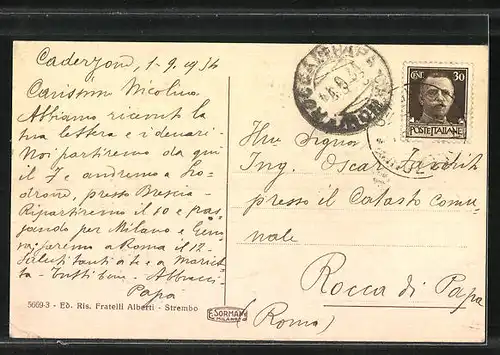 Caderzone, 1-9-1934
Carissimo Nicolino
Abbiamo ricevuto la
tua lettera e i denari.
Noi partiremo da qui
il 7 e andremo a Lo-
drone, presso Brescia -
Ripartiremo il 10 e pas
sando per Milano e Geno
va, saremo a Roma il 12 -
Saluti tanti a te e a
Tutti bene - Abbracci
Papà
5669-3 - Ed. Ris. Fratelli Alberti - Strembo
E. SORMANI
MILANO
ROCCA DI PAPA
ROMA
CENT. 30
POSTE ITALIANE
Illu Signor
Ing. Oscar
presso il Catasto comu-
nale
Rocca di Papa
(Roma)